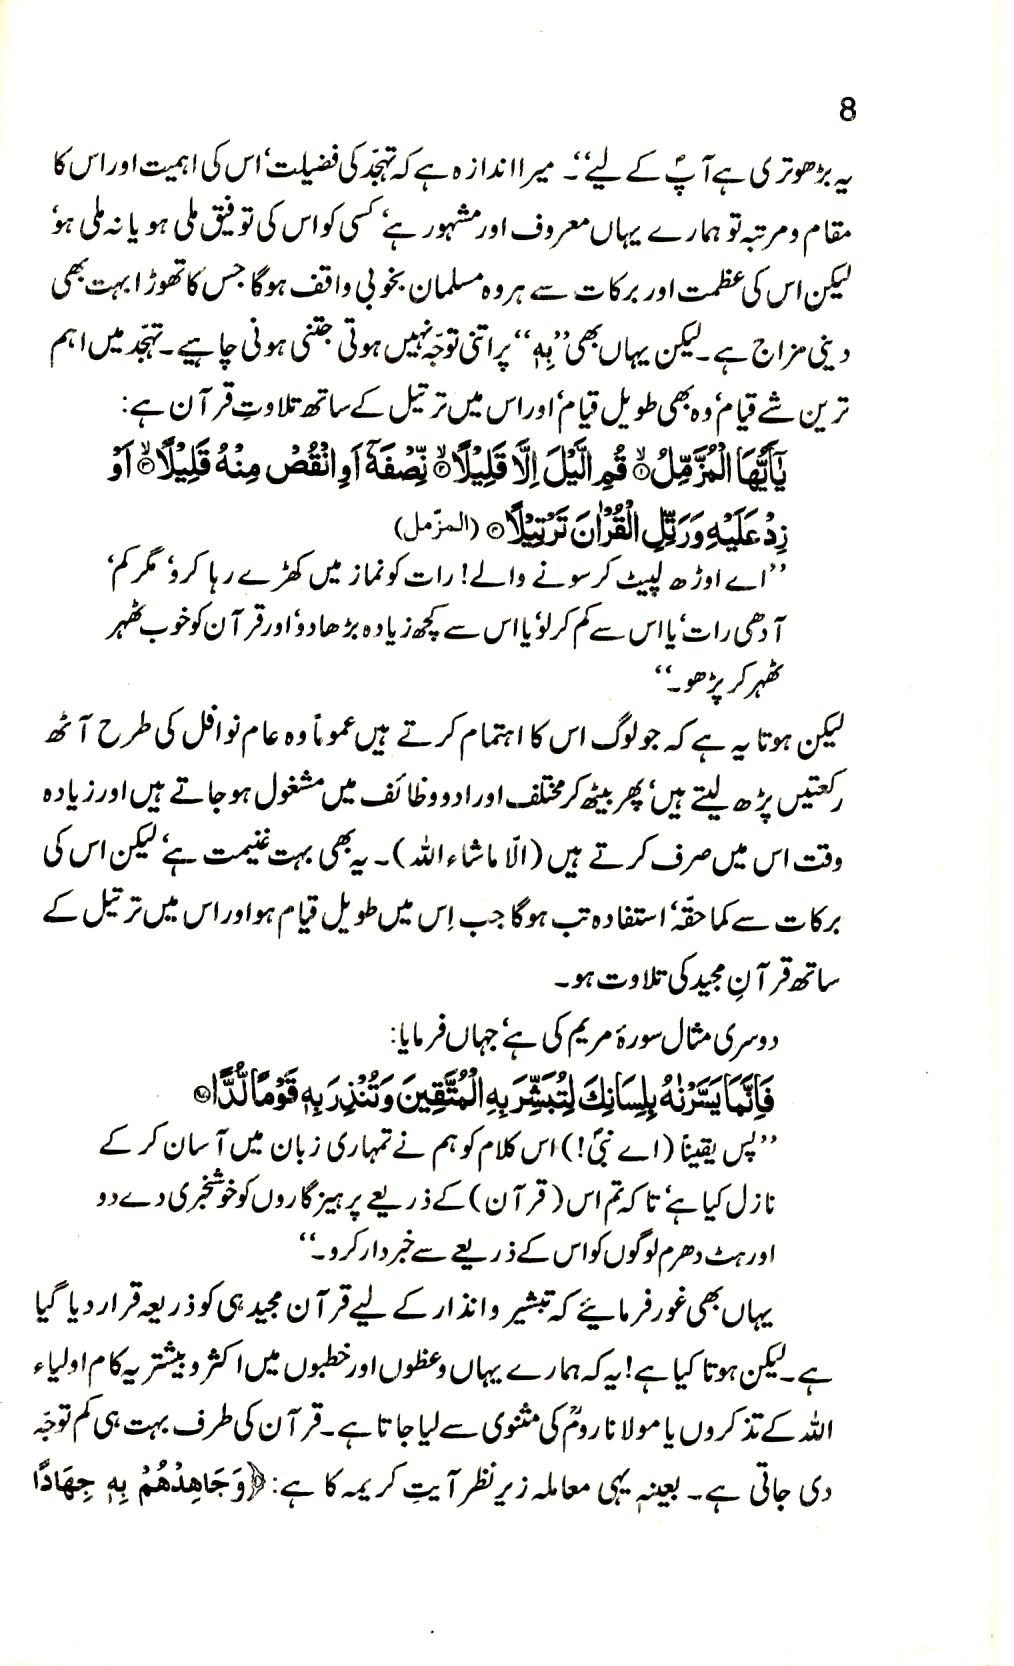 8
یہ بڑھوتری ہے آپؐ کے لیے‘‘۔ میرا اندازہ ہے کہ تہجّد کی فضیلت‘ اس کی اہمیت اور اس کا
مقام و مرتبہ تو ہمارے یہاں معروف اور مشہور ہے‘ کسی کو اس کی توفیق ملی ہو یا نہ ملی ہو‘
لیکن اس کی عظمت اور برکات سے ہر وہ مسلمان بخوبی واقف ہوگا جس کا تھوڑا بہت بھی
دینی مزاج ہے۔ لیکن یہاں بھی ’’بِهٖ‘‘ پر اتنی توجّہ نہیں ہوتی جتنی ہونی چاہیے۔ تہجّد میں اہم
ترین شے قیام‘ وہ بھی طویل قیام‘ اور اس میں ترتیل کے ساتھ تلاوتِ قرآن ہے:
يٰۤاَيُّهَا الْمُزَّمِّلُ ۙ﴿۱﴾ قُمِ الَّيْلَ اِلَّا قَلِيْلًا ۙ﴿۲﴾ نِّصْفَهٗۤ اَوِ انْقُصْ مِنْهُ قَلِيْلًا ۙ﴿۳﴾ اَوْ
زِدْ عَلَيْهِ وَرَتِّلِ الْقُرْاٰنَ تَرْتِيْلًا ﴿۴﴾ (المزّمل)
’’اے اوڑھ لپیٹ کر سونے والے! رات کو نماز میں کھڑے رہا کرو‘ مگر کم‘
آدھی رات‘ یا اس سے کم کرلو‘ یا اس سے کچھ زیادہ بڑھا دو‘ اور قرآن کو خوب ٹھہر
ٹھہر کر پڑھو۔‘‘
لیکن ہوتا یہ ہے کہ جو لوگ اس کا اہتمام کرتے ہیں عموماً وہ عام نوافل کی طرح آٹھ
رکعتیں پڑھ لیتے ہیں‘ پھر بیٹھ کر مختلف اوراد و وظائف میں مشغول ہو جاتے ہیں اور زیادہ
وقت اس میں صرف کرتے ہیں (الّا ماشاء اللہ)۔ یہ بھی بہت غنیمت ہے‘ لیکن اس کی
برکات سے کما حقّہٗ استفادہ تب ہوگا جب اِس میں طویل قیام ہو اور اس میں ترتیل کے
ساتھ قرآنِ مجید کی تلاوت ہو۔
دوسری مثال سورۂ مریم کی ہے‘ جہاں فرمایا:
فَاِنَّمَا يَسَّرْنٰهُ بِلِسَانِكَ لِتُبَشِّرَ بِهِ الْمُتَّقِيْنَ وَتُنْذِرَ بِهٖ قَوْمًا لُّدًّا ﴿۹۷﴾
’’پس یقیناً (اے نبیؐ!) اس کلام کو ہم نے تمہاری زبان میں آسان کر کے
نازل کیا ہے‘ تاکہ تم اس (قرآن) کے ذریعے پرہیزگاروں کو خوشخبری دے دو
اور ہٹ دھرم لوگوں کو اس کے ذریعے سے خبردار کرو۔‘‘
یہاں بھی غور فرمائیے کہ تبشیر و انذار کے لیے قرآن مجید ہی کو ذریعہ قرار دیا گیا
ہے۔ لیکن ہوتا کیا ہے! یہ کہ ہمارے یہاں وعظوں اور خطبوں میں اکثر و بیشتر یہ کام اولیاء
اللہ کے تذکروں یا مولانا رومؒ کی مثنوی سے لیا جاتا ہے۔ قرآن کی طرف بہت ہی کم توجّہ
دی جاتی ہے۔ بعینہٖ یہی معاملہ زیر نظر آیتِ کریمہ کا ہے: ﴿وَجَاهِدْهُمْ بِهٖ جِهَادًا